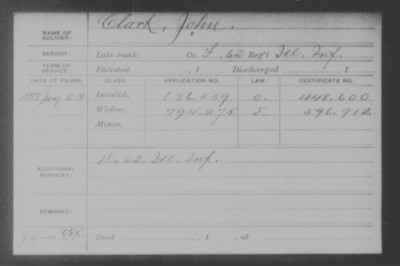 NAME OF SOLDIER: Clark, John.
SERVICE: Late rank, Co. F, 62 Reg't Ill. Inf.
TERM OF SERVICE: Enlisted , 1 Discharged , 1
DATE OF FILING. CLASS. APPLICATION NO. LAW. CERTIFICATE NO.
1888 Jany 23 Invalid, 636.559 O. 448.600
Widow, 794.275 J. 596.912
Minor,
ADDITIONAL SERVICES: D. 62. Ill. Inf.
REMARKS:
Died , 1 , at